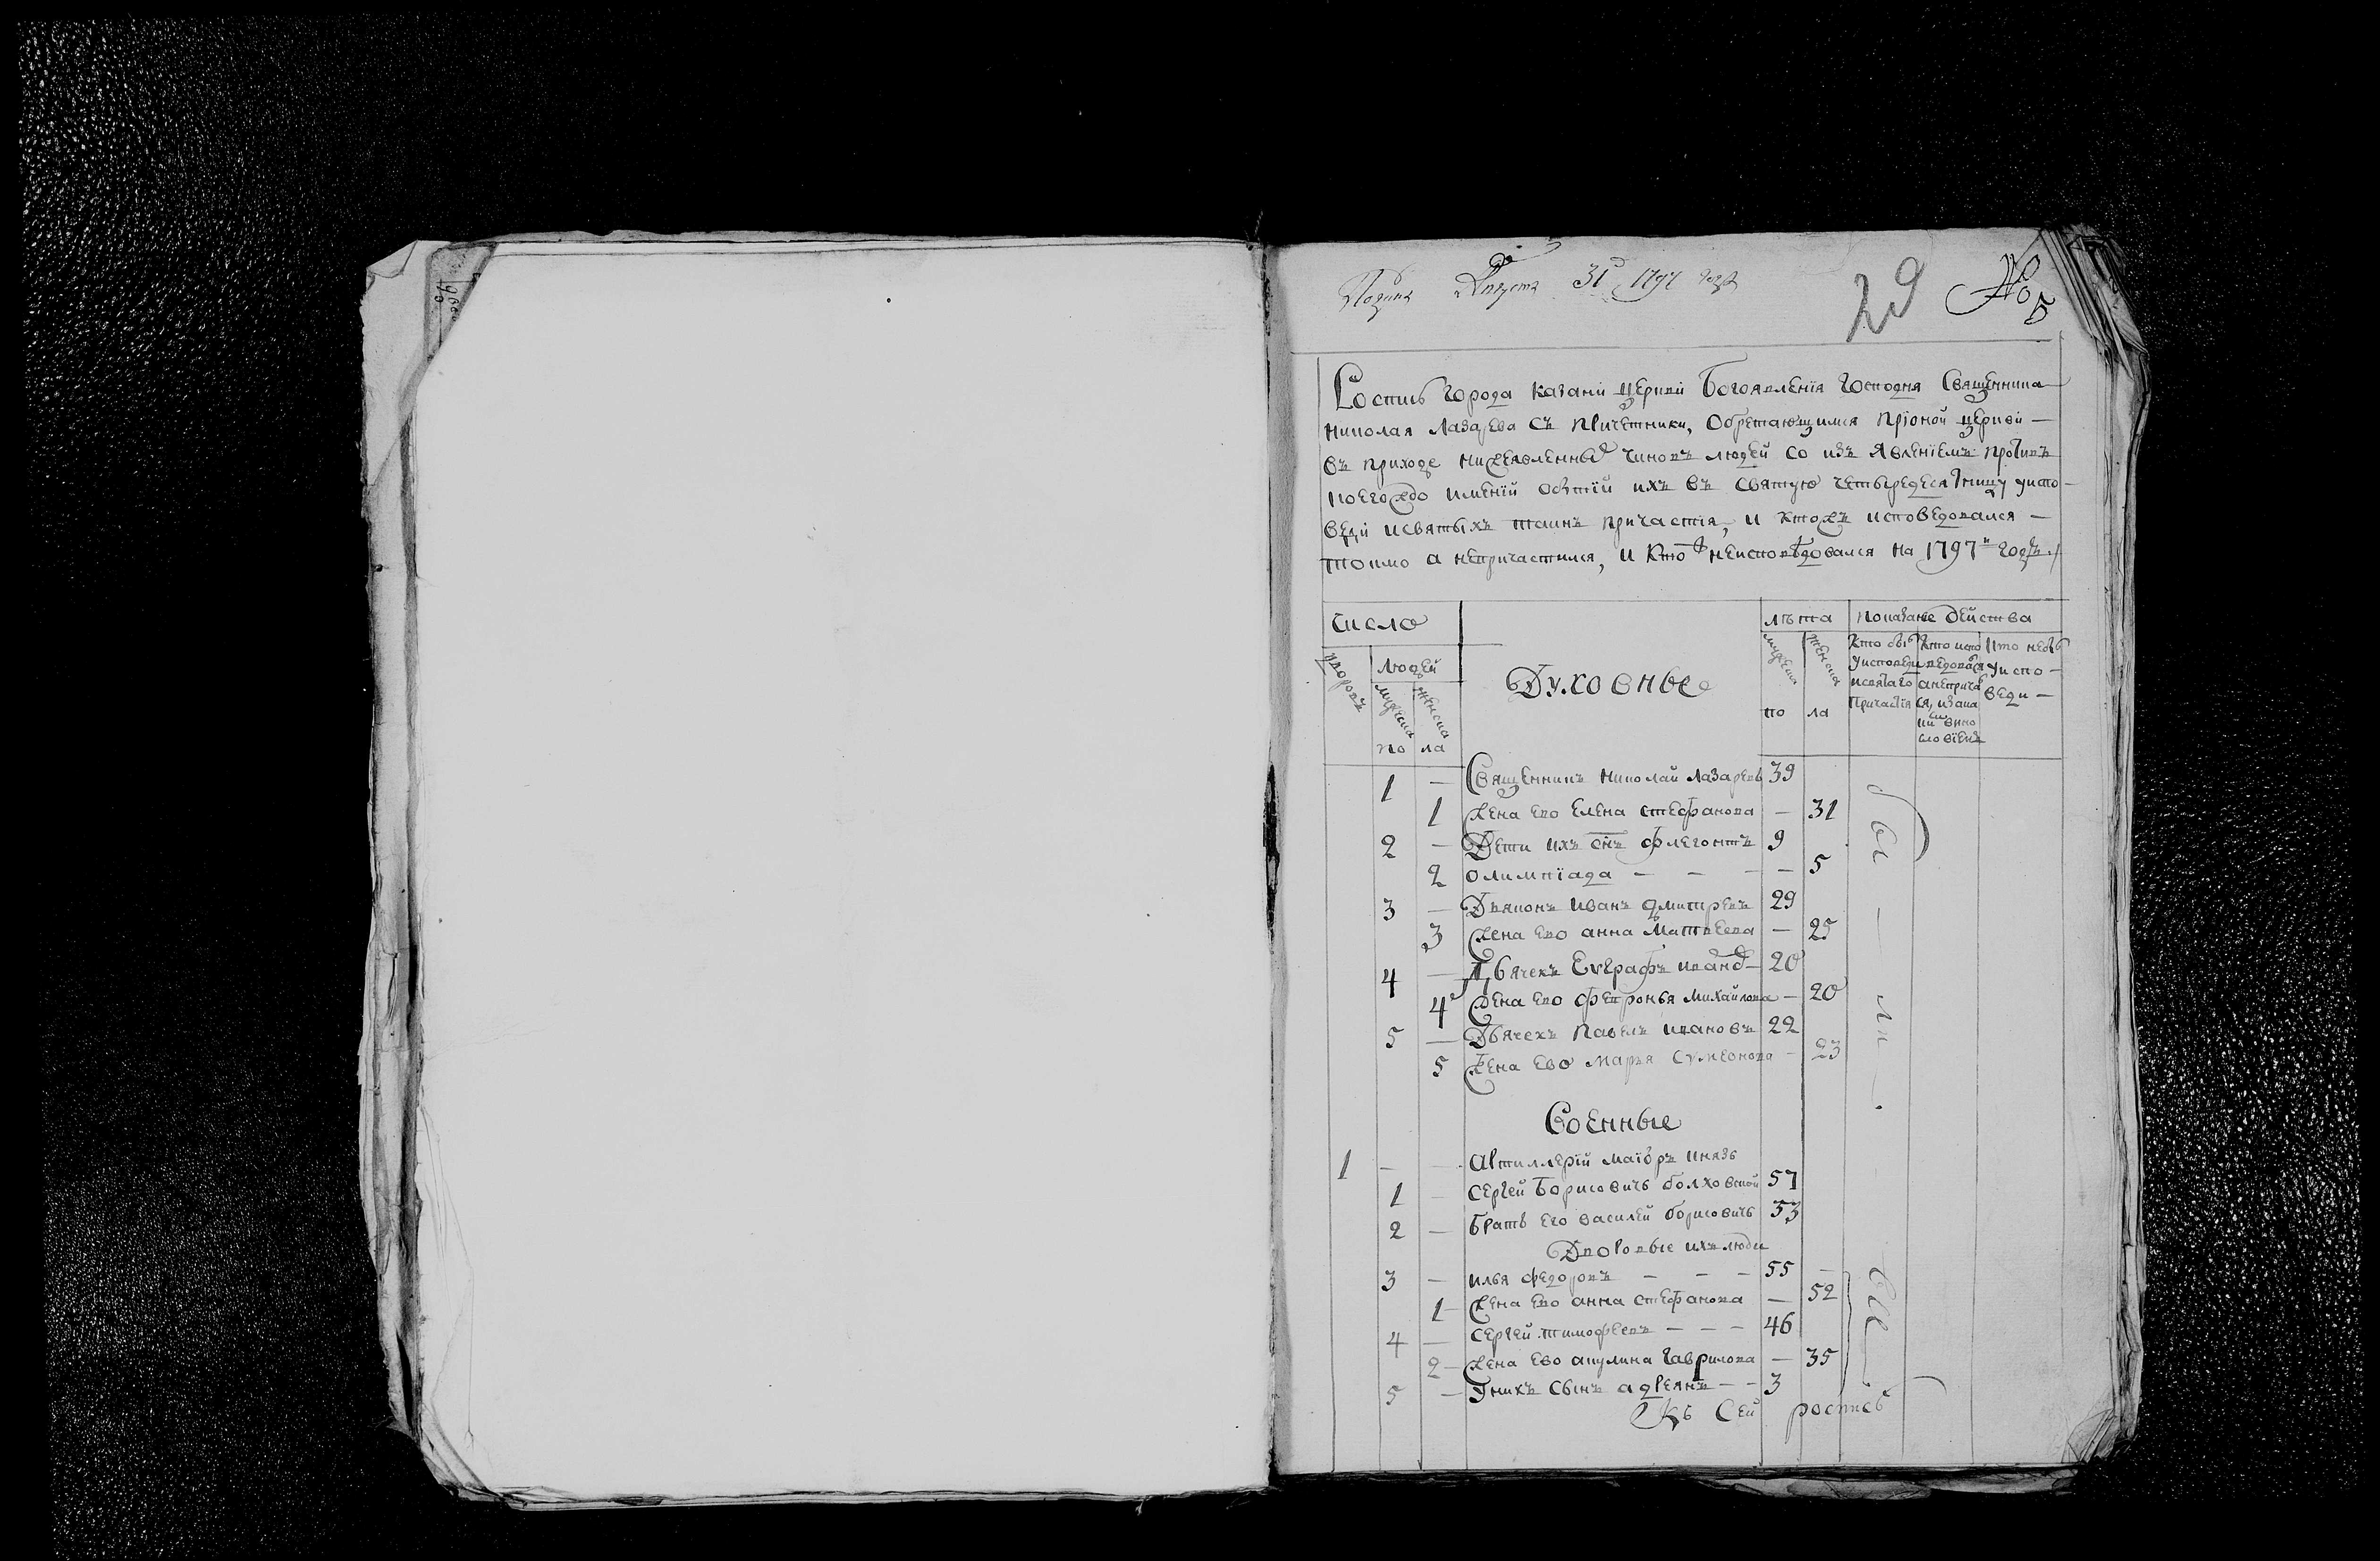 Подана Августа 31 1797 года
29 No 5
Роспись города казани церкви Богоявления Господня Священника
николая Лазарева съ причетники, Обретающимся прионой церкви
въ приходе нижеявленных чиновъ людей со изъ Явлениемъ противъ
коегождо имений о бытии ихъ въ святую четыредесятницу уиспо
веди и святыхъ таинъ причастия, и ктожъ исповедовался
токмо а непричастился, и кто неисповедовался на 1797й годъ
число Духовные лѣта показание действа
дворовъ людей мужеска женска
кто был уисповеди исвятаго причастия
кто исповедовался а непричас
кто небыл уисповеди
мужеска по женска ла
1 — Священникъ николай лазаревъ 39
1 жена ево Елена стефанова — 31
2 — Дети ихъ снъ флегонтъ 9
2 олимпиада — — — — 5
3 — Дьяконъ иванъ дмитревъ 29
3 жена ево анна Матвеева — 25
4 — Дьячекъ Евграфъ иванов 20
4 жена ево февронья михайлова — 20
5 — Дьячекъ Павелъ ивановъ 22
5 жена ево марья Сумеонова — 23
были
Военные
1 — — Артиллерий маиоръ князь
1 — Сергей Борисовичъ болховской 57
2 — братъ его василей борисовичъ 53
Дворовые ихъ люди
3 — илья федоровъ — — — 55 —
1 — жена ево анна стефанова — 52
4 — сергей тимофеевъ — — — 46
2 — жена ево акулина гаврилова — 35
5 — Унихъ сынъ адреянъ — — 3
Къ Сей росписъ